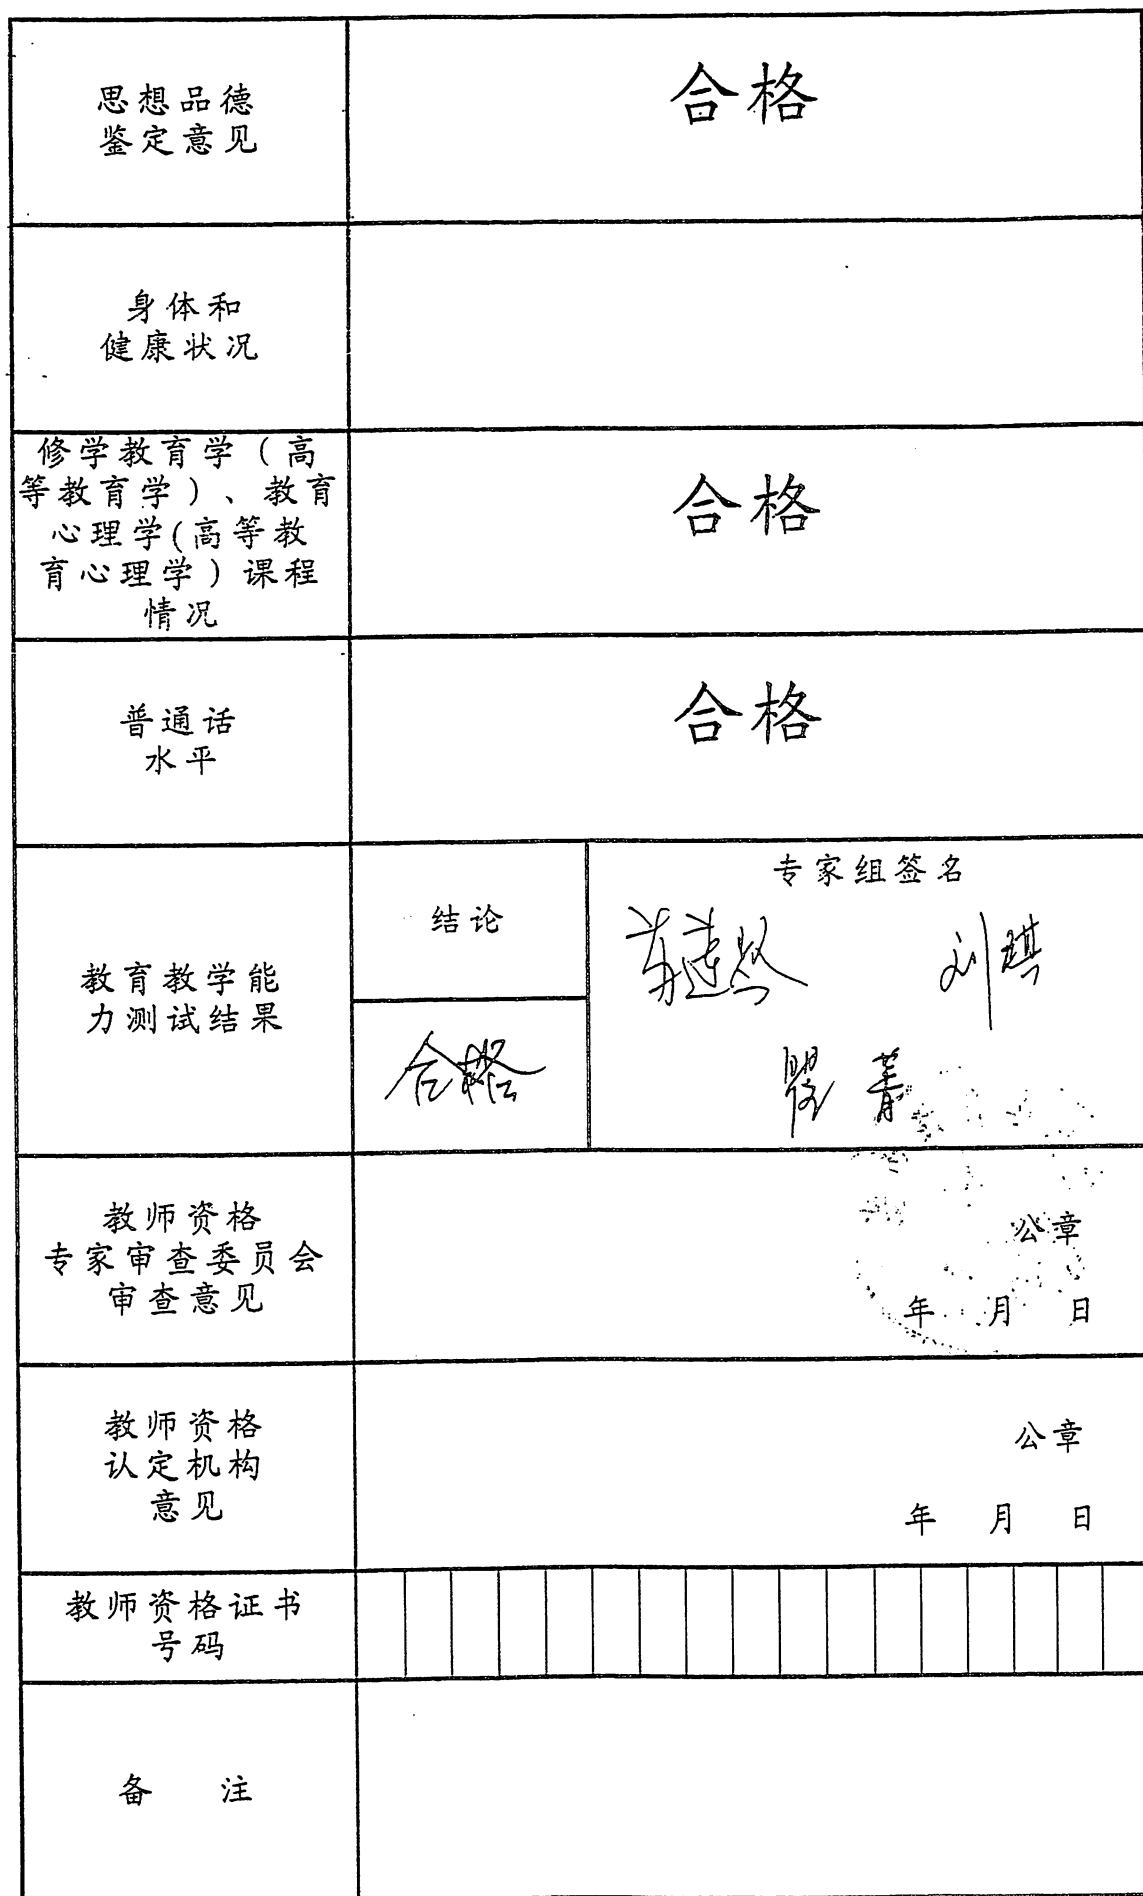 思想品德
鉴定意见
合格
身体和
健康状况
修学教育学（高
等教育学）、教育
心理学(高等教
育心理学）课程
情况
合格
普通话
水平
合格
教育教学能
力测试结果
结论
合格
专家组签名
刘琪
教师资格
专家审查委员会
审查意见
公章
年 月 日
教师资格
认定机构
意见
公章
年 月 日
教师资格证书
号码
备 注